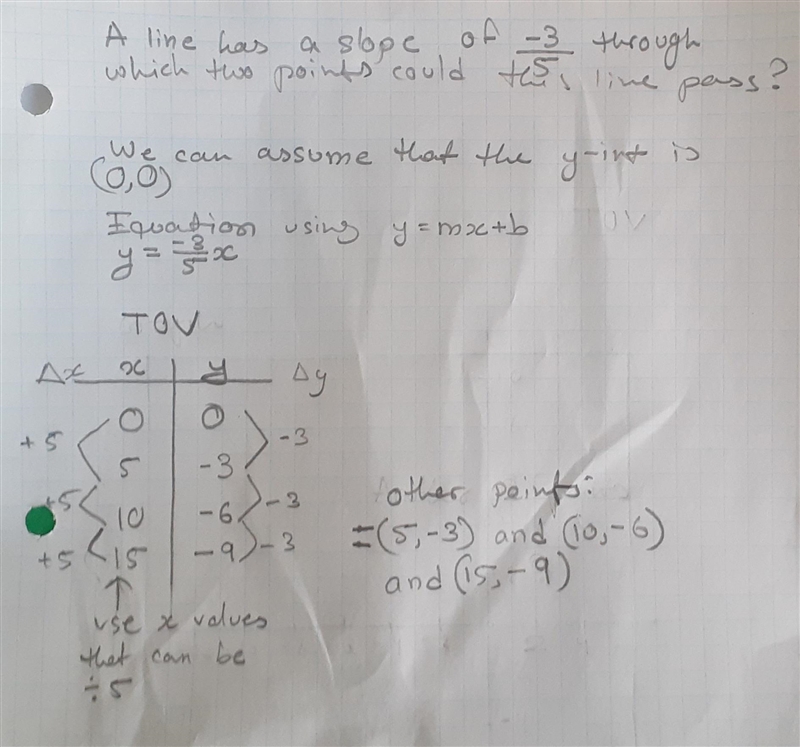 A line has a slope of -3/5 through
which two points could this line pass?
We can assume that the y-int is
(0,0)
Equation using y = mx+b
y = -3/5 x
TOV
Δx x | y Δy
0 | 0
+5 -3
5 | -3
+5 -3
10 | -6
+5 -3
15 | -9
↑
use x values
that can be
÷5
other points:
=(5,-3) and (10,-6)
and (15,-9)